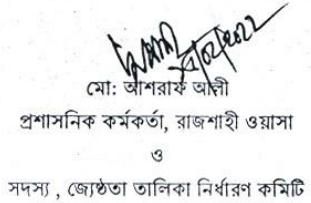 মো: আশরাফ আলী
প্রশাসনিক কর্মকর্তা, রাজশাহী ওয়াসা
ও
সদস্য , জ্যেষ্ঠতা তালিকা নির্ধারণ কমিটি